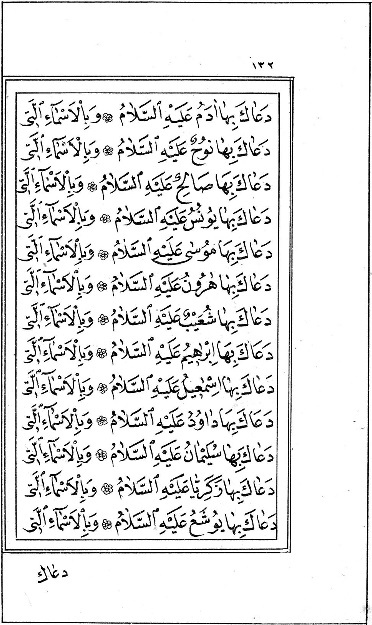 ١٣٢
دَعَاكَ بِهَا اٰدَمُ عَلَيْهِ السَّلَامُ ۞ وَبِالْاَسْمَاءِ الَّتِي
دَعَاكَ بِهَا نُوحٌ عَلَيْهِ السَّلَامُ ۞ وَبِالْاَسْمَاءِ الَّتِي
دَعَاكَ بِهَا صَالِحٌ عَلَيْهِ السَّلَامُ ۞ وَبِالْاَسْمَاءِ الَّتِي
دَعَاكَ بِهَا يُونُسُ عَلَيْهِ السَّلَامُ ۞ وَبِالْاَسْمَاءِ الَّتِي
دَعَاكَ بِهَا مُوسٰى عَلَيْهِ السَّلَامُ ۞ وَبِالْاَسْمَاءِ الَّتِي
دَعَاكَ بِهَا هٰرُونُ عَلَيْهِ السَّلَامُ ۞ وَبِالْاَسْمَاءِ الَّتِي
دَعَاكَ بِهَا شُعَيْبٌ عَلَيْهِ السَّلَامُ ۞ وَبِالْاَسْمَاءِ الَّتِي
دَعَاكَ بِهَا اِبْرٰهِيمُ عَلَيْهِ السَّلَامُ ۞ وَبِالْاَسْمَاءِ الَّتِي
دَعَاكَ بِهَا اِسْمٰعِيلُ عَلَيْهِ السَّلَامُ ۞ وَبِالْاَسْمَاءِ الَّتِي
دَعَاكَ بِهَا دَاوُدُ عَلَيْهِ السَّلَامُ ۞ وَبِالْاَسْمَاءِ الَّتِي
دَعَاكَ بِهَا سُلَيْمَانُ عَلَيْهِ السَّلَامُ ۞ وَبِالْاَسْمَاءِ الَّتِي
دَعَاكَ بِهَا زَكَرِيَّا عَلَيْهِ السَّلَامُ ۞ وَبِالْاَسْمَاءِ الَّتِي
دَعَاكَ بِهَا يُوشَعُ عَلَيْهِ السَّلَامُ ۞ وَبِالْاَسْمَاءِ الَّتِي
دعاك